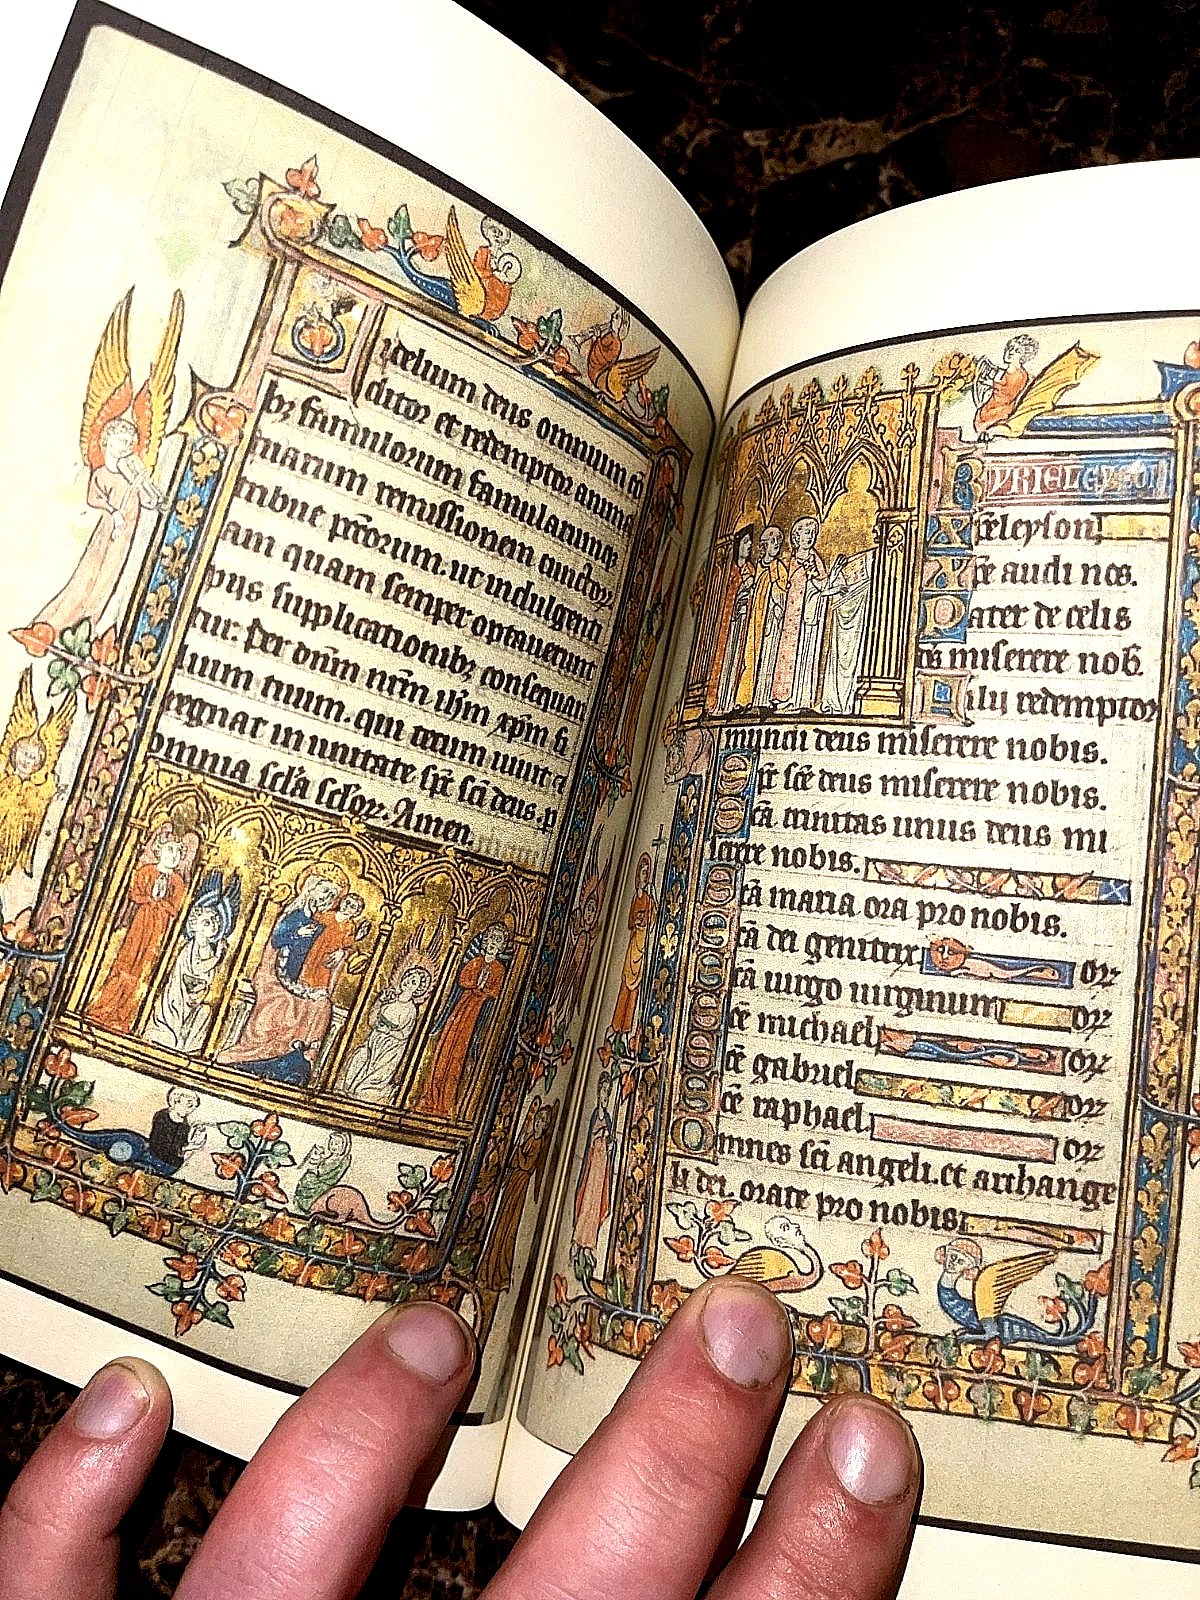 Fidelium deus omnium cō
ditor et redemptor anima
bꝫ famulorum famularumqꝫ
tuarum remissionem cunctoꝝ
tribue pc̄corum. ut indulgenti
am quam semper optauerunt
pijs supplicationibꝫ consequan
tur: Per dn̄m nr̄m ih̄m xp̄m fi
lium tuum. qui tecum uiuit ⁊
regnat in unitate sp̄c sc̄i deus. p
omnia sc̄la sc̄loꝝ. Amen.
KYRIELEYSON
Xp̄eleyson.
Xp̄e audi nos.
Pater de celis
deus miserere nob̄.
Fili redemptor
mundi deus miserere nobis.
Sp̄c sc̄e deus miserere nobis.
Sc̄a trinitas unus deus mi
serere nobis.
Sc̄a maria ora pro nobis.
Sc̄a dei genitrix or̄
Sc̄a uirgo uirginum or̄
Sc̄e michael or̄
Sc̄e gabriel or̄
Sc̄e raphael. or̄
Omnes sc̄i angeli. et archange
li dei. orate pro nobis.